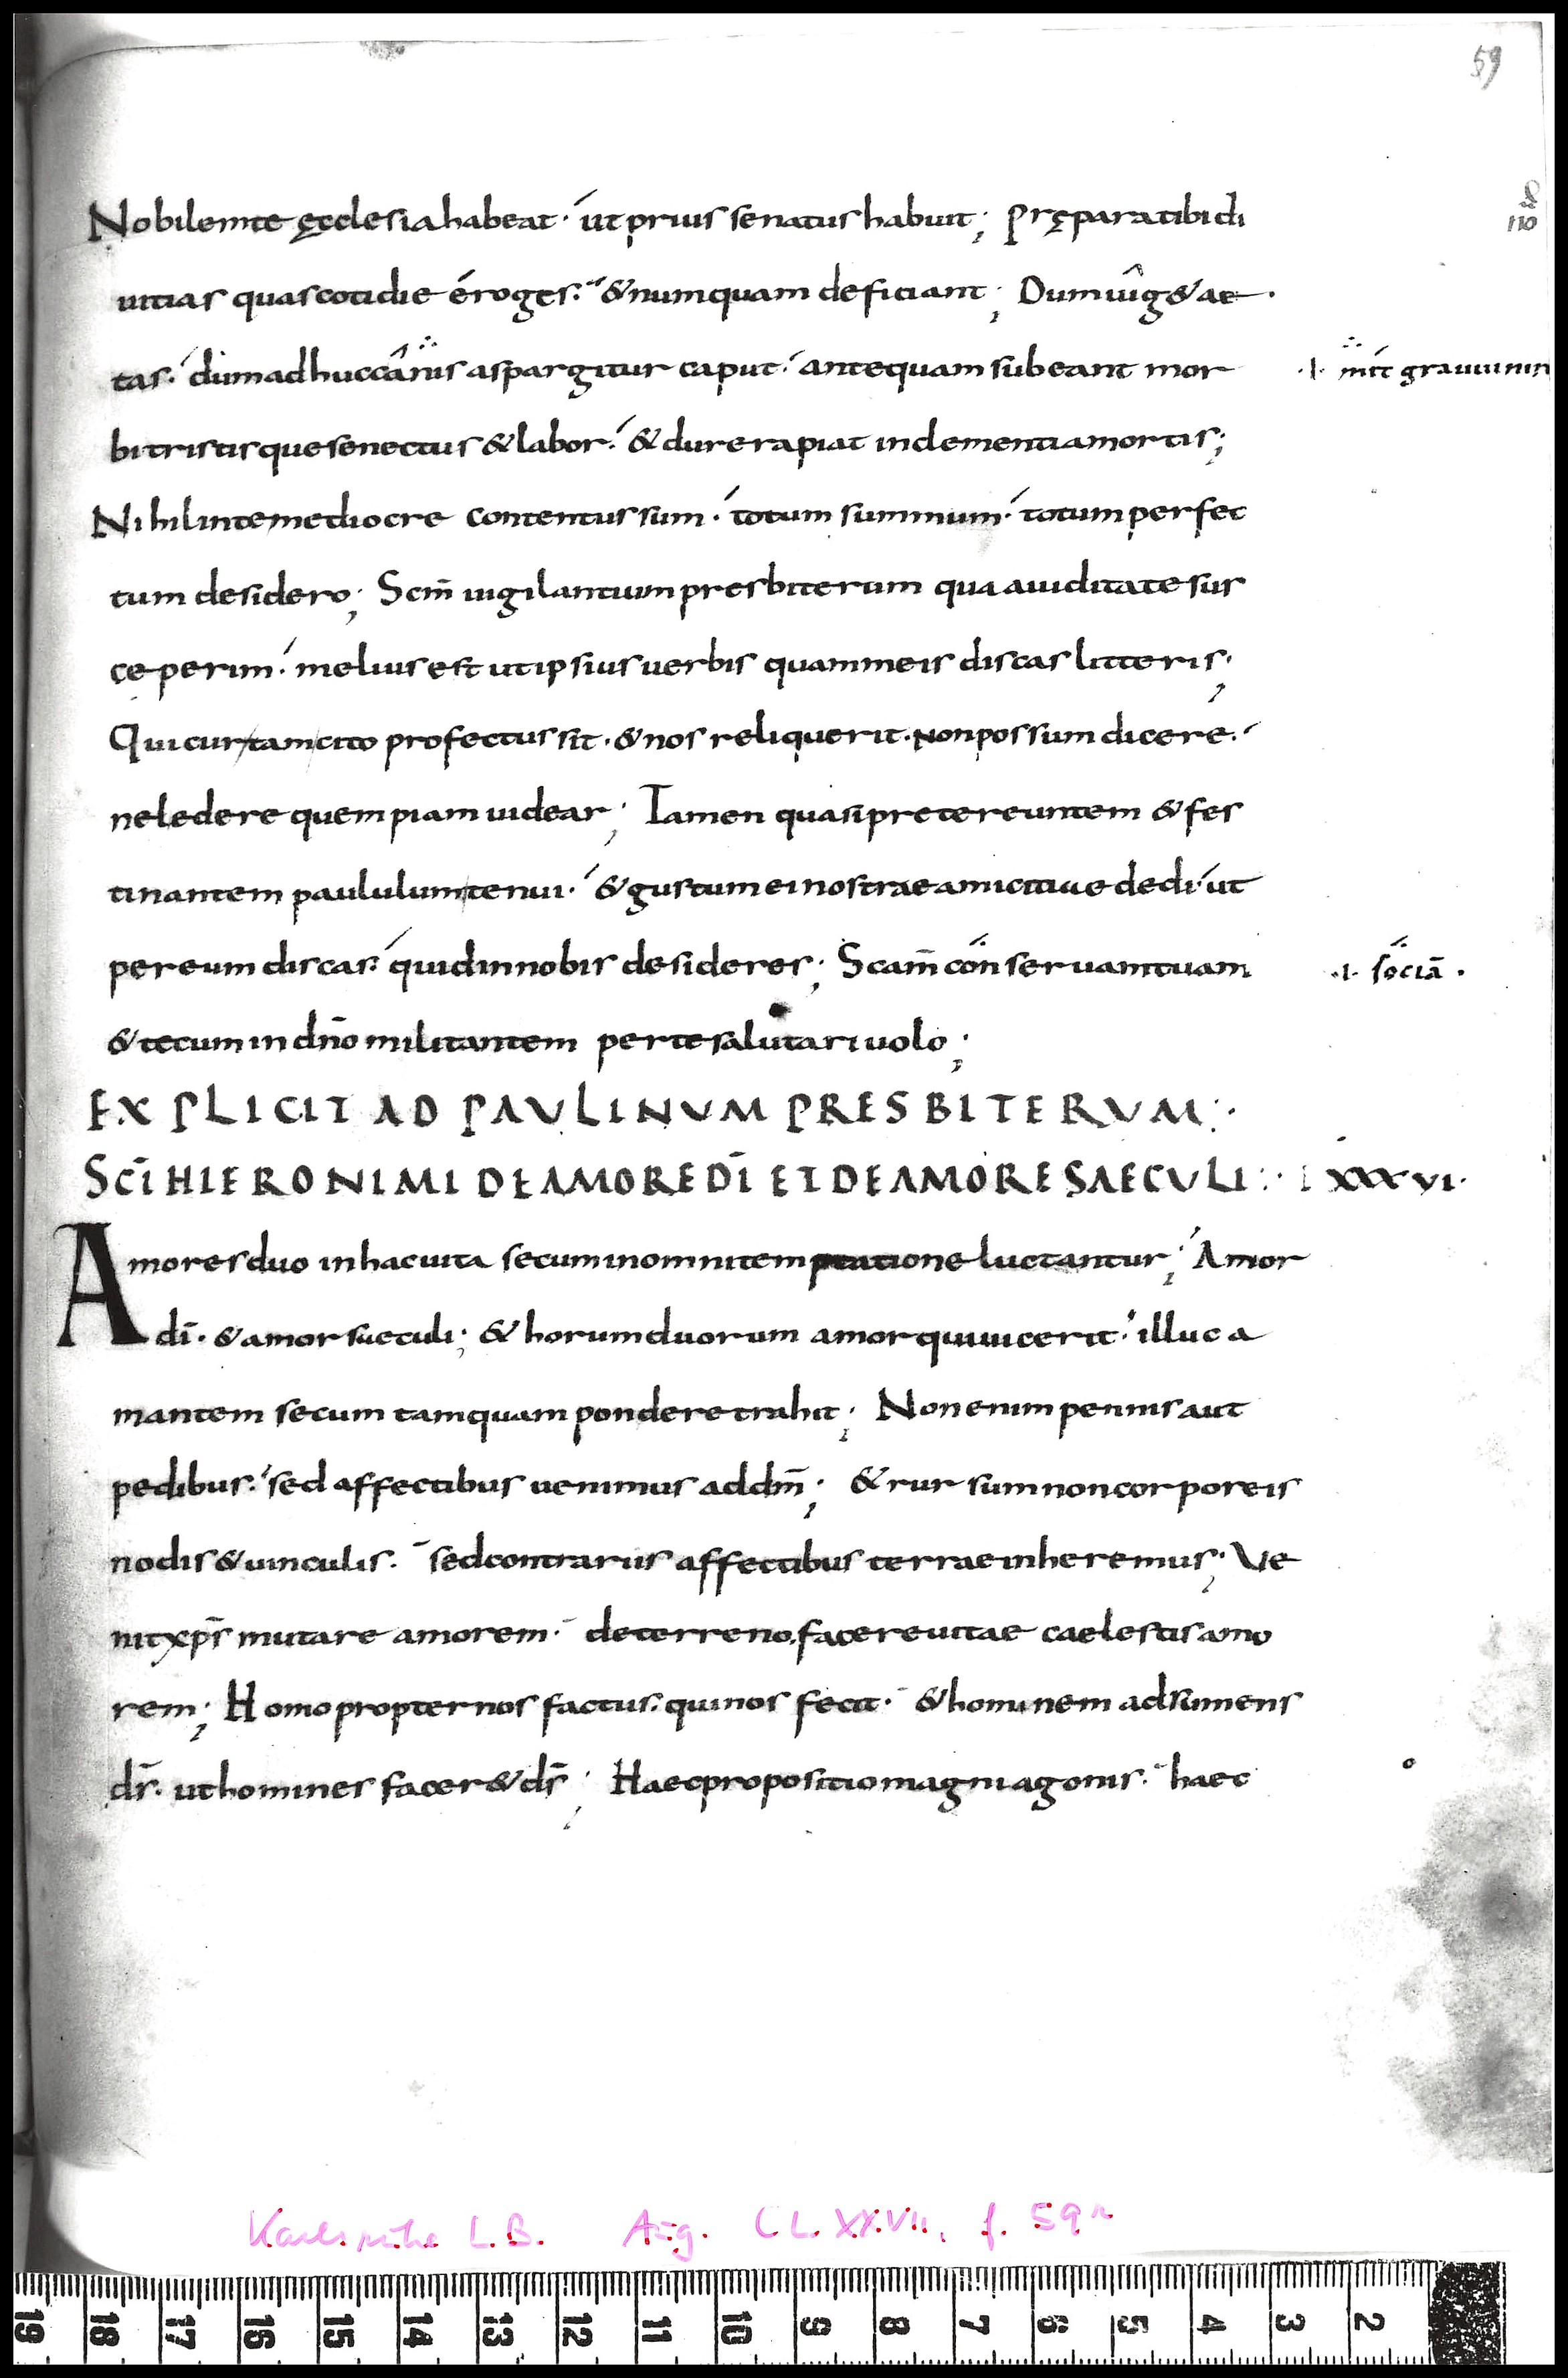 59
Nobilem te ęcclesia habeat· ut prius senatus habuit; Prępara tibi di
uitias quas cotidie éroges· & numquam deficiant; Dum uîg& ae
tas· dum adhuc cânis aspargitur caput· antequam subeant mor
bi tristisque senectus & labor· & dure rapiat inclementia mortis;
Nihil in te mediocre contentus sum· totum summum· totum perfec
tum desidero; Scm̄ uigilantium presbiterum qua auiditate sus
ceperim· melius est ut ipsius uerbis quam meis discas litteris;
Qui cur tam cito profectus sit· & nos reliquerit· Non possum dicere·
ne ledere quempiam uidear; Tamen quasi pretereuntem & fes
tinantem paululum tenui· & gustum ei nostrae amicitiae dedi· ut
per eum discas· quid in nobis desideres; Scam̄ conseruam tuam
·i· sociā·
& tecum in dn̄o militantem per te salutari uolo;
EXPLICIT AD PAULINUM PRESBITERUM:·
SCI̅ HIERONIMI DE AMORE DI̅ ET DE AMORE SAECULI:· XXXVI·
Amores duo in hac uita secum in omni temptatione luctantur; Amor
dī· & amor saeculi; & horum duorum amor qui uicerit· illuc a
mantem secum tamquam pondere trahit; Non enim pennis aut
pedibus· sed affectibus uenimus ad dm̄; & rursum non corporeis
nodis & uinculis· sed contrariis affectibus terrae inheremus; Ve
nit xp̄s mutare amorem· de terreno· facere uitae caelestis amo
rem; Homo propter nos factus· qui nos fecit· & hominem adsumens
ds̄· ut homines facer& ds̄; Haec propositio magni agonis· haec
Karlsruhe L.B. Aug. CLXXVII, f. 59r
19 18 17 16 15 14 13 12 11 10 9 8 7 6 5 4 3 2